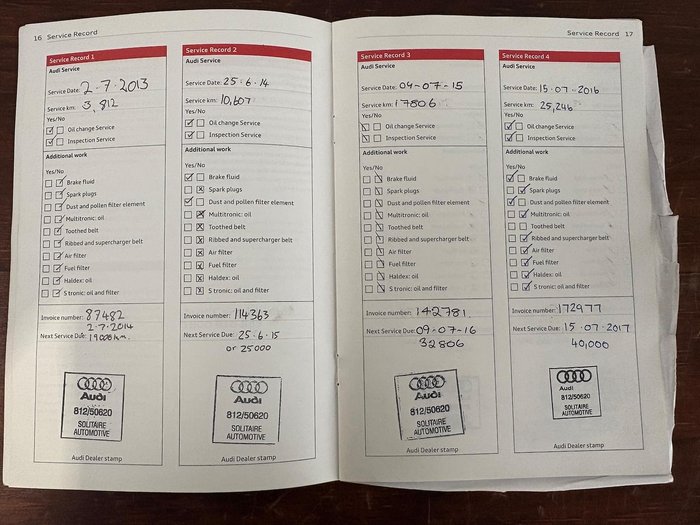 16 Service Record
Service Record 1
Audi Service
Service Date: 2-7-2013
Service km: 3,812
Yes/No
Oil change Service
Inspection Service
Additional work
Yes/No
Brake fluid
Spark plugs
Dust and pollen filter element
Multitronic: oil
Toothed belt
Ribbed and supercharger belt
Air filter
Fuel filter
Haldex: oil
S tronic: oil and filter
Invoice number: 87482
2-7-2014
Next Service Due: 19000km.
Audi
812/50620
SOLITAIRE
AUTOMOTIVE
Audi Dealer stamp
Service Record 2
Audi Service
Service Date: 25-6-14
Service km: 10,607
Yes/No
Oil change Service
Inspection Service
Additional work
Yes/No
Brake fluid
Spark plugs
Dust and pollen filter element
Multitronic: oil
Toothed belt
Ribbed and supercharger belt
Air filter
Fuel filter
Haldex: oil
S tronic: oil and filter
Invoice number: 114363
Next Service Due: 25-6-15
or 25000
Audi
812/50620
SOLITAIRE
AUTOMOTIVE
Audi Dealer stamp
Service Record 17
Service Record 3
Audi Service
Service Date: 09-07-15
Service km: 17806
Yes/No
Oil change Service
Inspection Service
Additional work
Yes/No
Brake fluid
Spark plugs
Dust and pollen filter element
Multitronic: oil
Toothed belt
Ribbed and supercharger belt
Air filter
Fuel filter
Haldex: oil
S tronic: oil and filter
Invoice number: 142781
Next Service Due: 09-07-16
32806
Audi
812/50620
SOLITAIRE
AUTOMOTIVE
Audi Dealer stamp
Service Record 4
Audi Service
Service Date: 15·07·2016
Service km: 25,246
Yes/No
Oil change Service
Inspection Service
Additional work
Yes/No
Brake fluid
Spark plugs
Dust and pollen filter element
Multitronic: oil
Toothed belt
Ribbed and supercharger belt
Air filter
Fuel filter
Haldex: oil
S tronic: oil and filter
Invoice number: 172977
Next Service Due: 15·07·2017
40,000
Audi
812/50620
SOLITAIRE
AUTOMOTIVE
Audi Dealer stamp